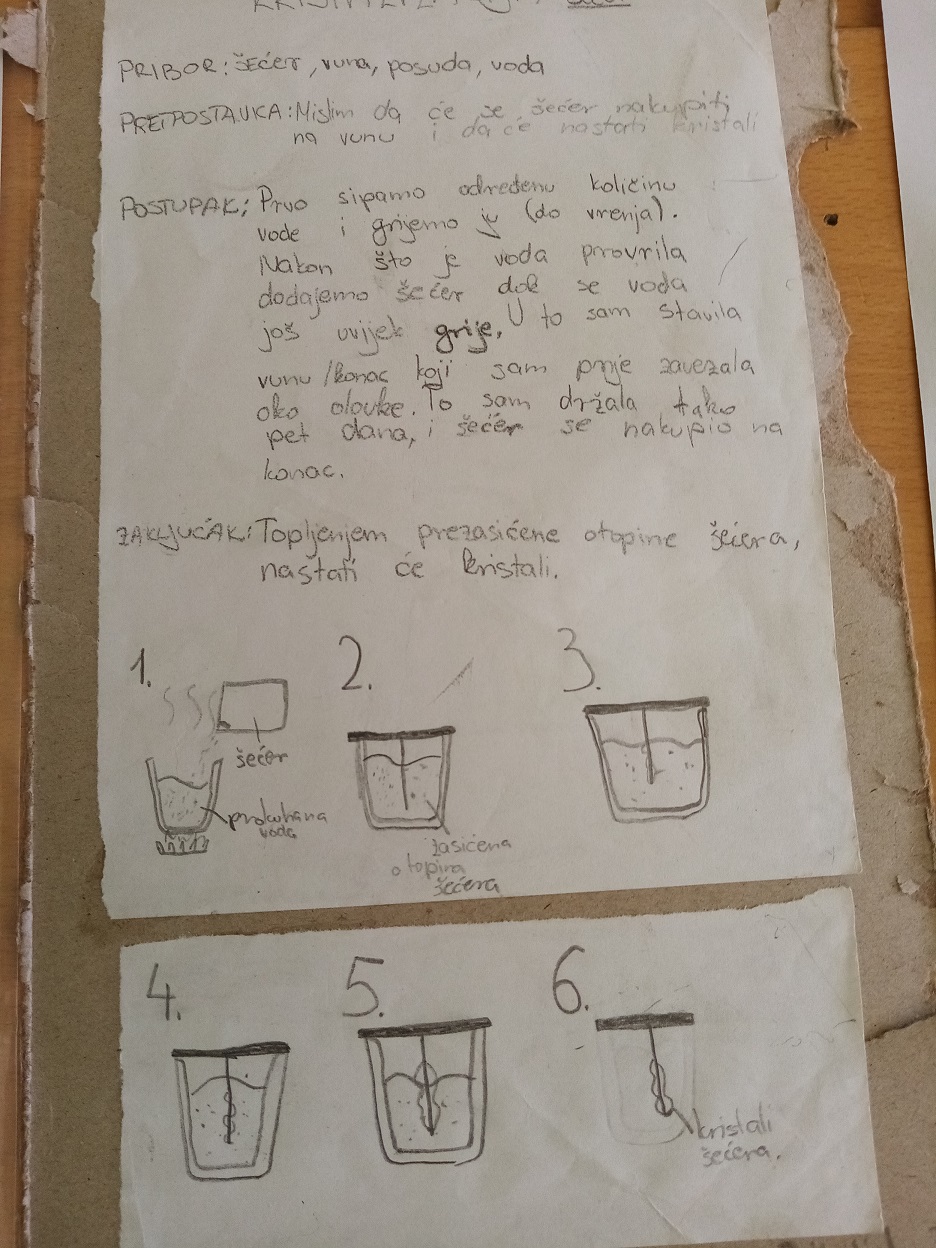 PRIBOR: šećer, vuna, posuda, voda
PRETPOSTAVKA: Mislim da će se šećer nakupiti
na vunu i da će nastati kristali
POSTUPAK: Prvo sipamo određenu količinu
vode i grijemo ju (do vrenja).
Nakon što je voda provrila
dodajemo šećer dok se voda
još uvijek grije. U to sam stavila
vunu/konac koji sam prije zavezala
oko olovke. To sam držala tako
pet dana, i šećer se nakupio na
konac.
ZAKLJUČAK: Topljenjem prezasićene otopine šećera,
nastati će kristali.
1.
šećer
prokuhana
voda
2.
zasićena
otopina
šećera
3.
4.
5.
6.
kristali
šećera.